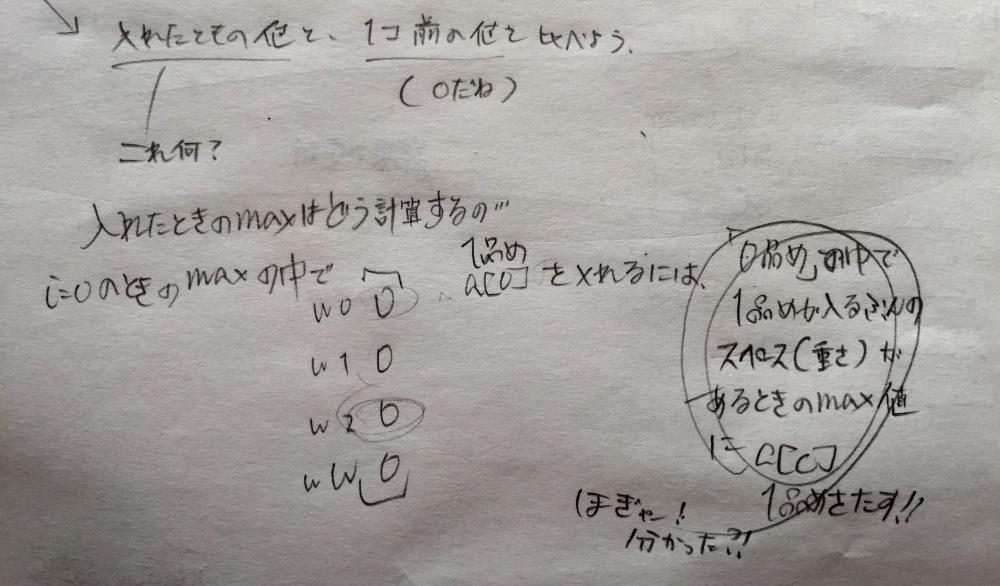 入れたときの値と、1コ前の値を比べよう。
(0だね)
これ何?
入れたときのmaxはどう計算するの…
i=0のときのmaxの中で
w0 0
w1 0
w2 0
wW 0
1品め
a[0]を入れるには、
0品め」の中で
1品めが入るぶんの
スペース(重さ)が
あるときのmax値
に a[0]
1品めをたす!!
ほぎゃー!
分かった?!